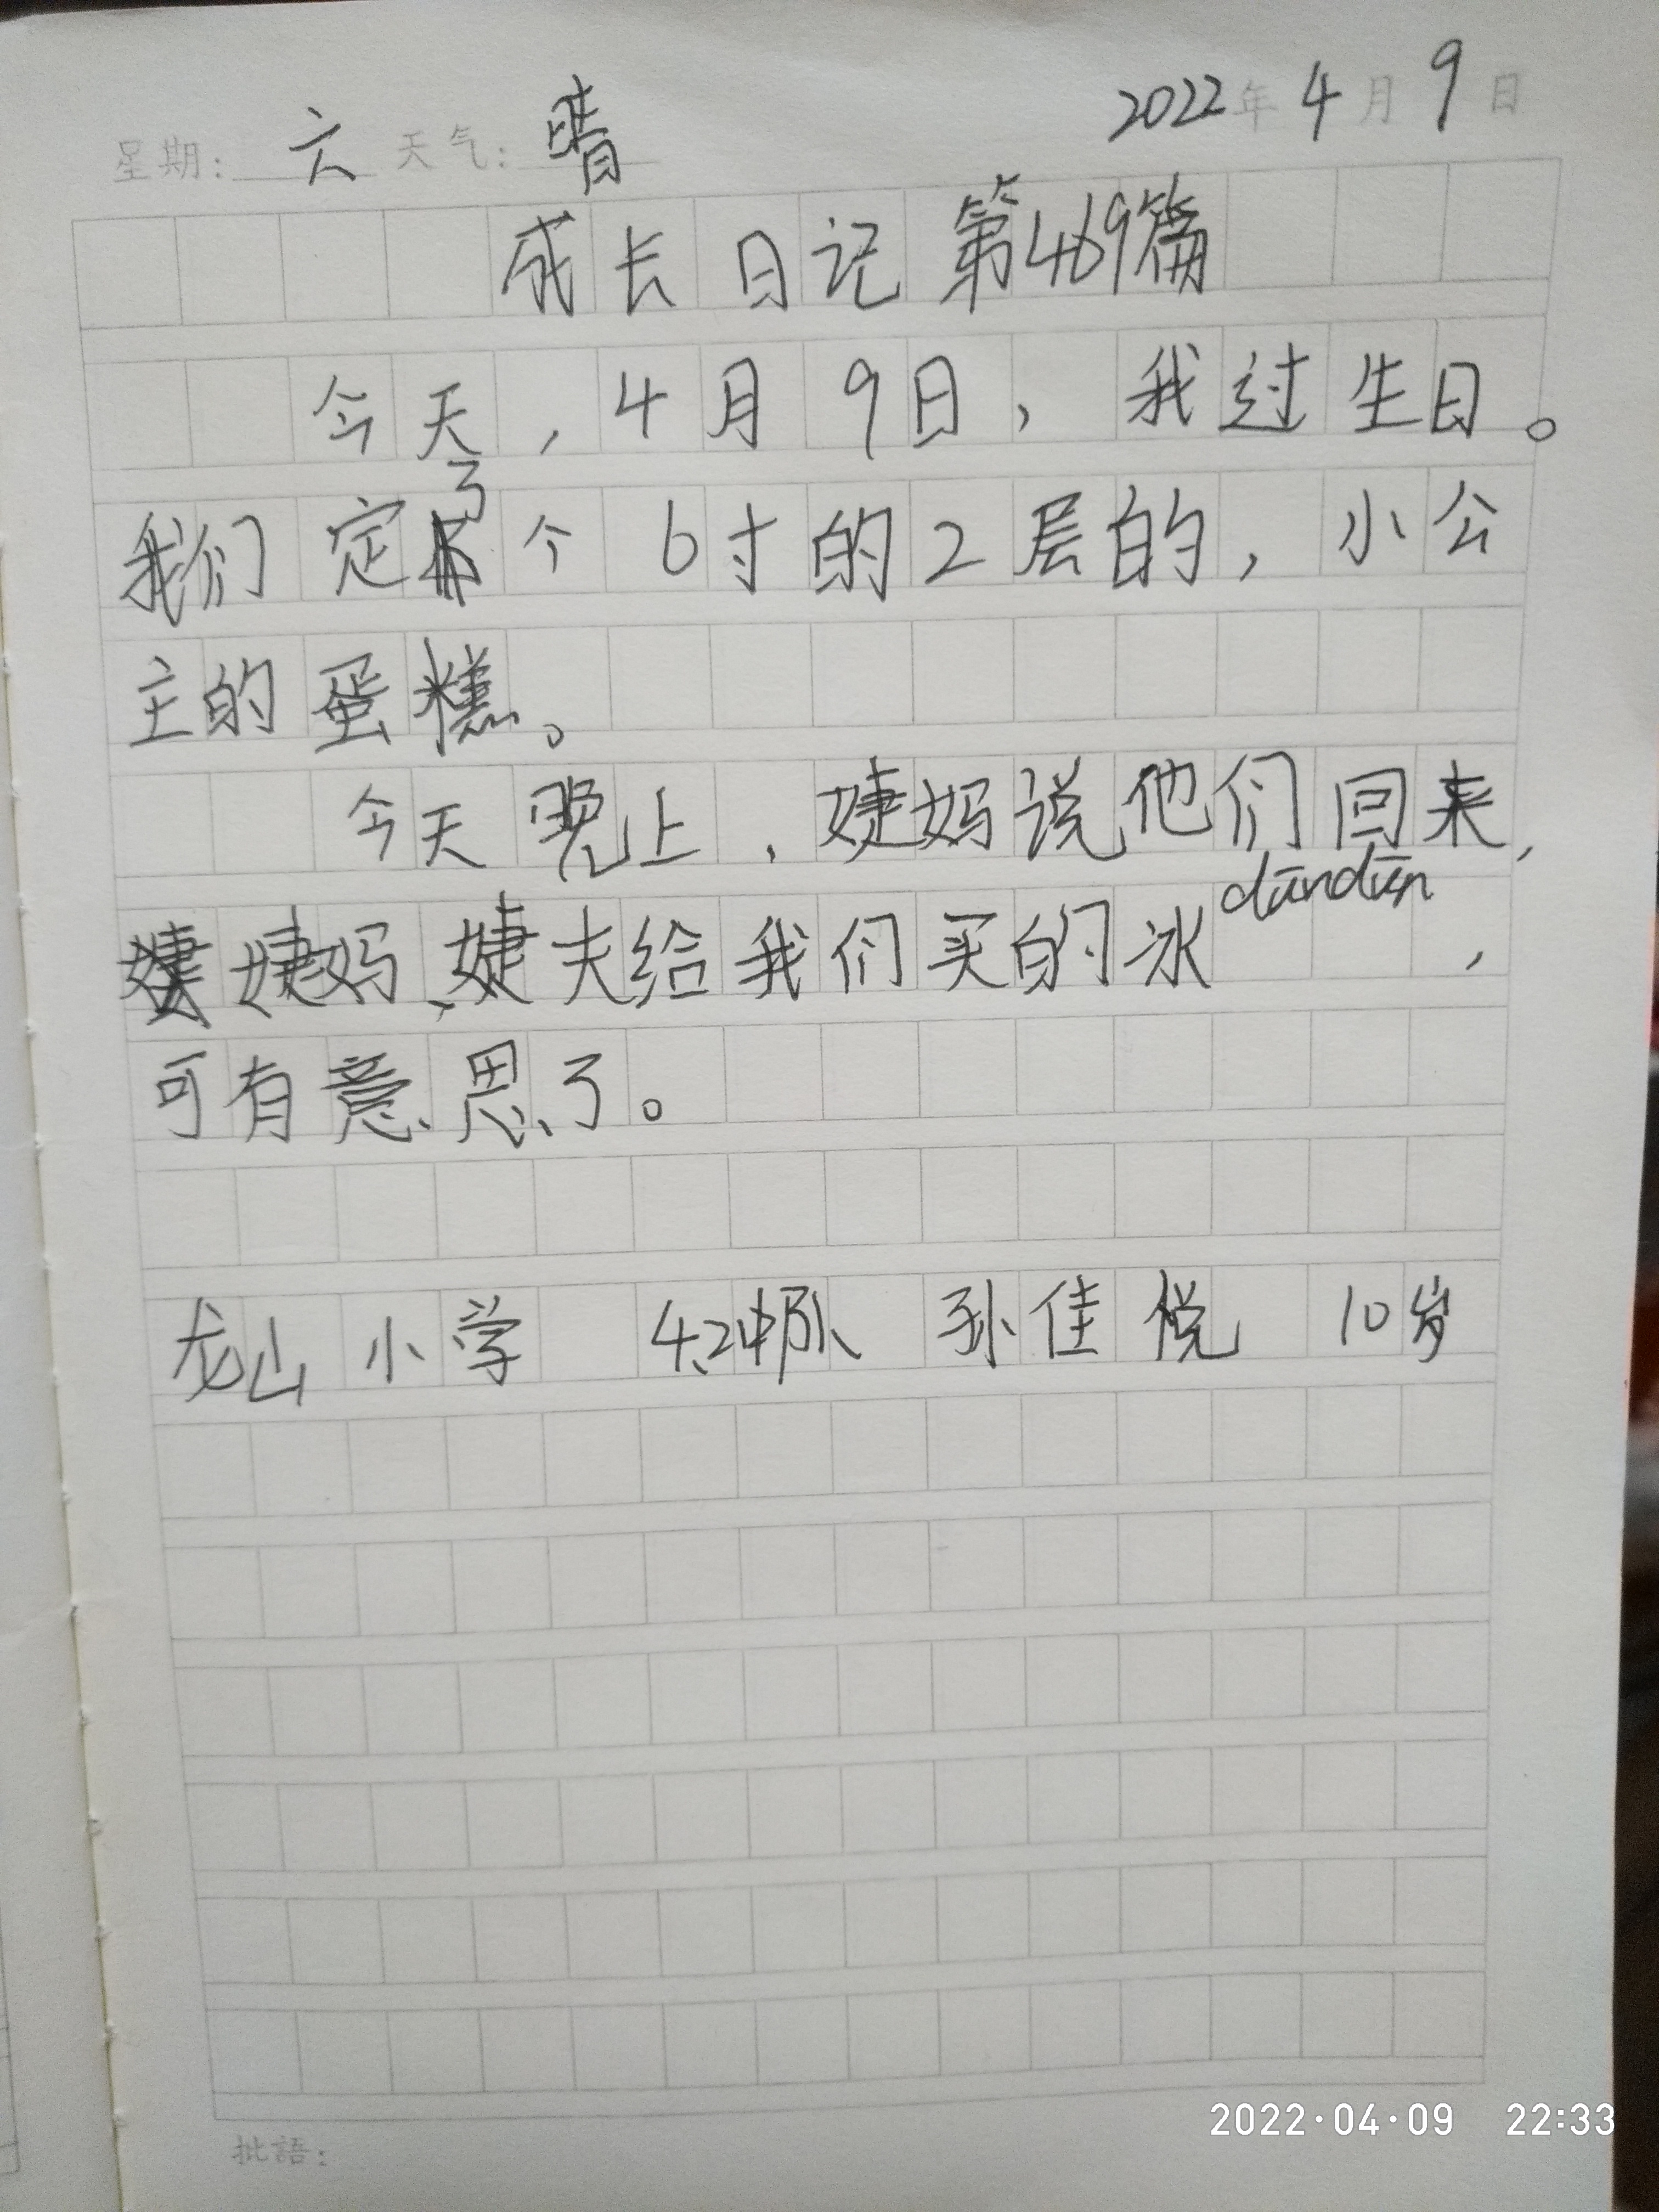 星期: 六 天气: 晴 2022年4月9日
成长日记 第469篇
今天,4月9日,我过生日。
我们定了个6寸的2层的,小公
主的蛋糕。
今天晚上,婕妈说他们回来,
婕妈、婕夫给我们买的冰dūndūn,
可有意思了。
龙山小学 4.2中队 孙佳悦 10岁
批語:
2022·04·09 22:33